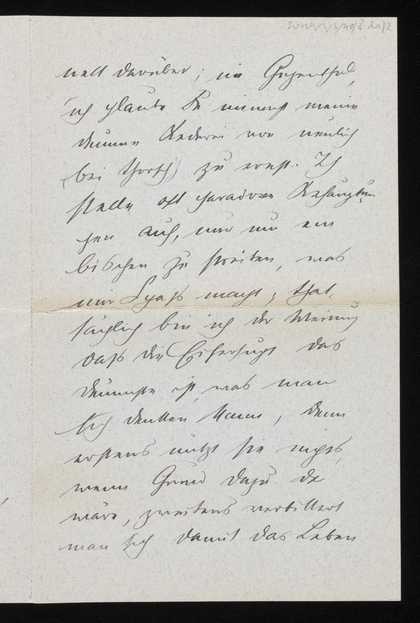 nett darüber; im Gegentheil,
ich glaube Du nimmst meine
dumme Rederei von neulich
(bei Thorsch) zu ernst. Ich
stelle oft paradoxe Behauptun-
gen auf, nur um ein
bischen zu streiten, was
mir Spaß macht; that-
sächlich bin ich der Meinung
daß die Eifersucht das
dümmste ist was man
sich denken kann, denn
erstens nützt sie nichts,
wenn Grund dazu da
wäre, zweitens verbittert
man sich damit das Leben